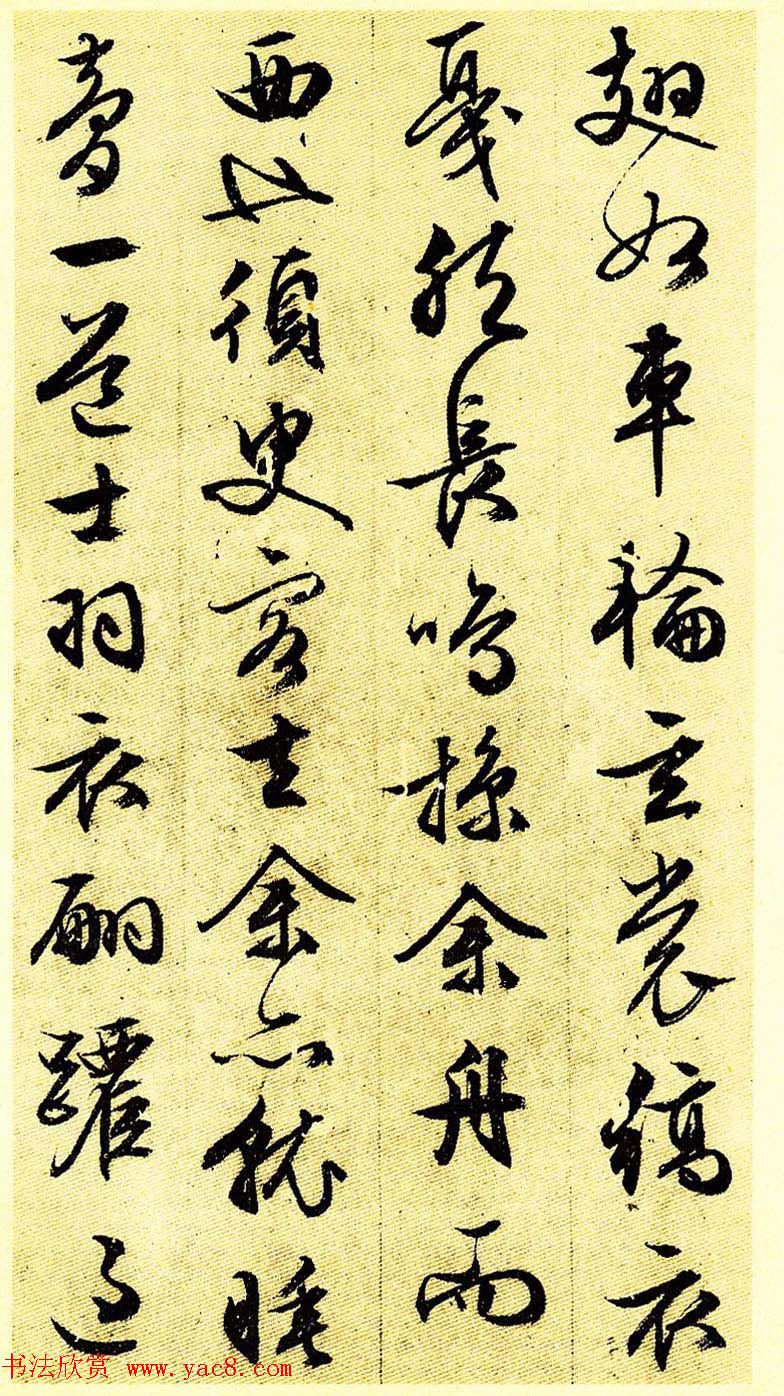 翅如車輪玄裳縞衣
戛然長鳴掠余舟而
西也須臾客去余亦就睡
夢一道士羽衣翩躚過
书法欣赏 www.yac8.com